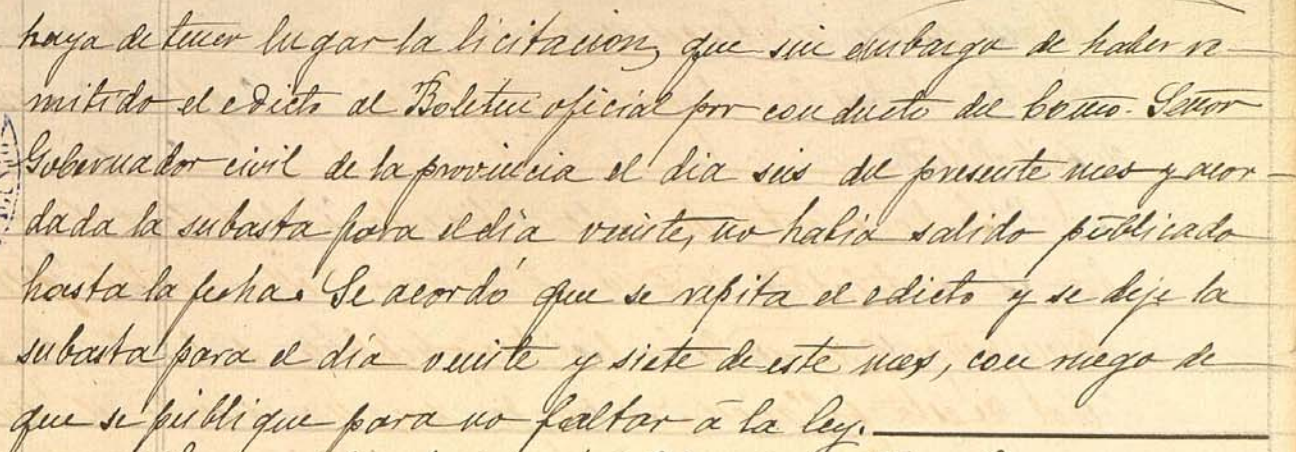 haya de tener lugar la licitacion, que sin embargo de haber re-
mitido el edicto al Boletin oficial por conducto del Señor
Gobernador civil de la provincia el dia seis del presente mes y acor-
dada la subasta para el dia veinte, no habia salido publicado
hasta la fecha. Se acordó que se repita el edicto y se deje la
subasta para el dia veinte y siete de este mes, con ruego de
que se publique para no faltar á la ley.